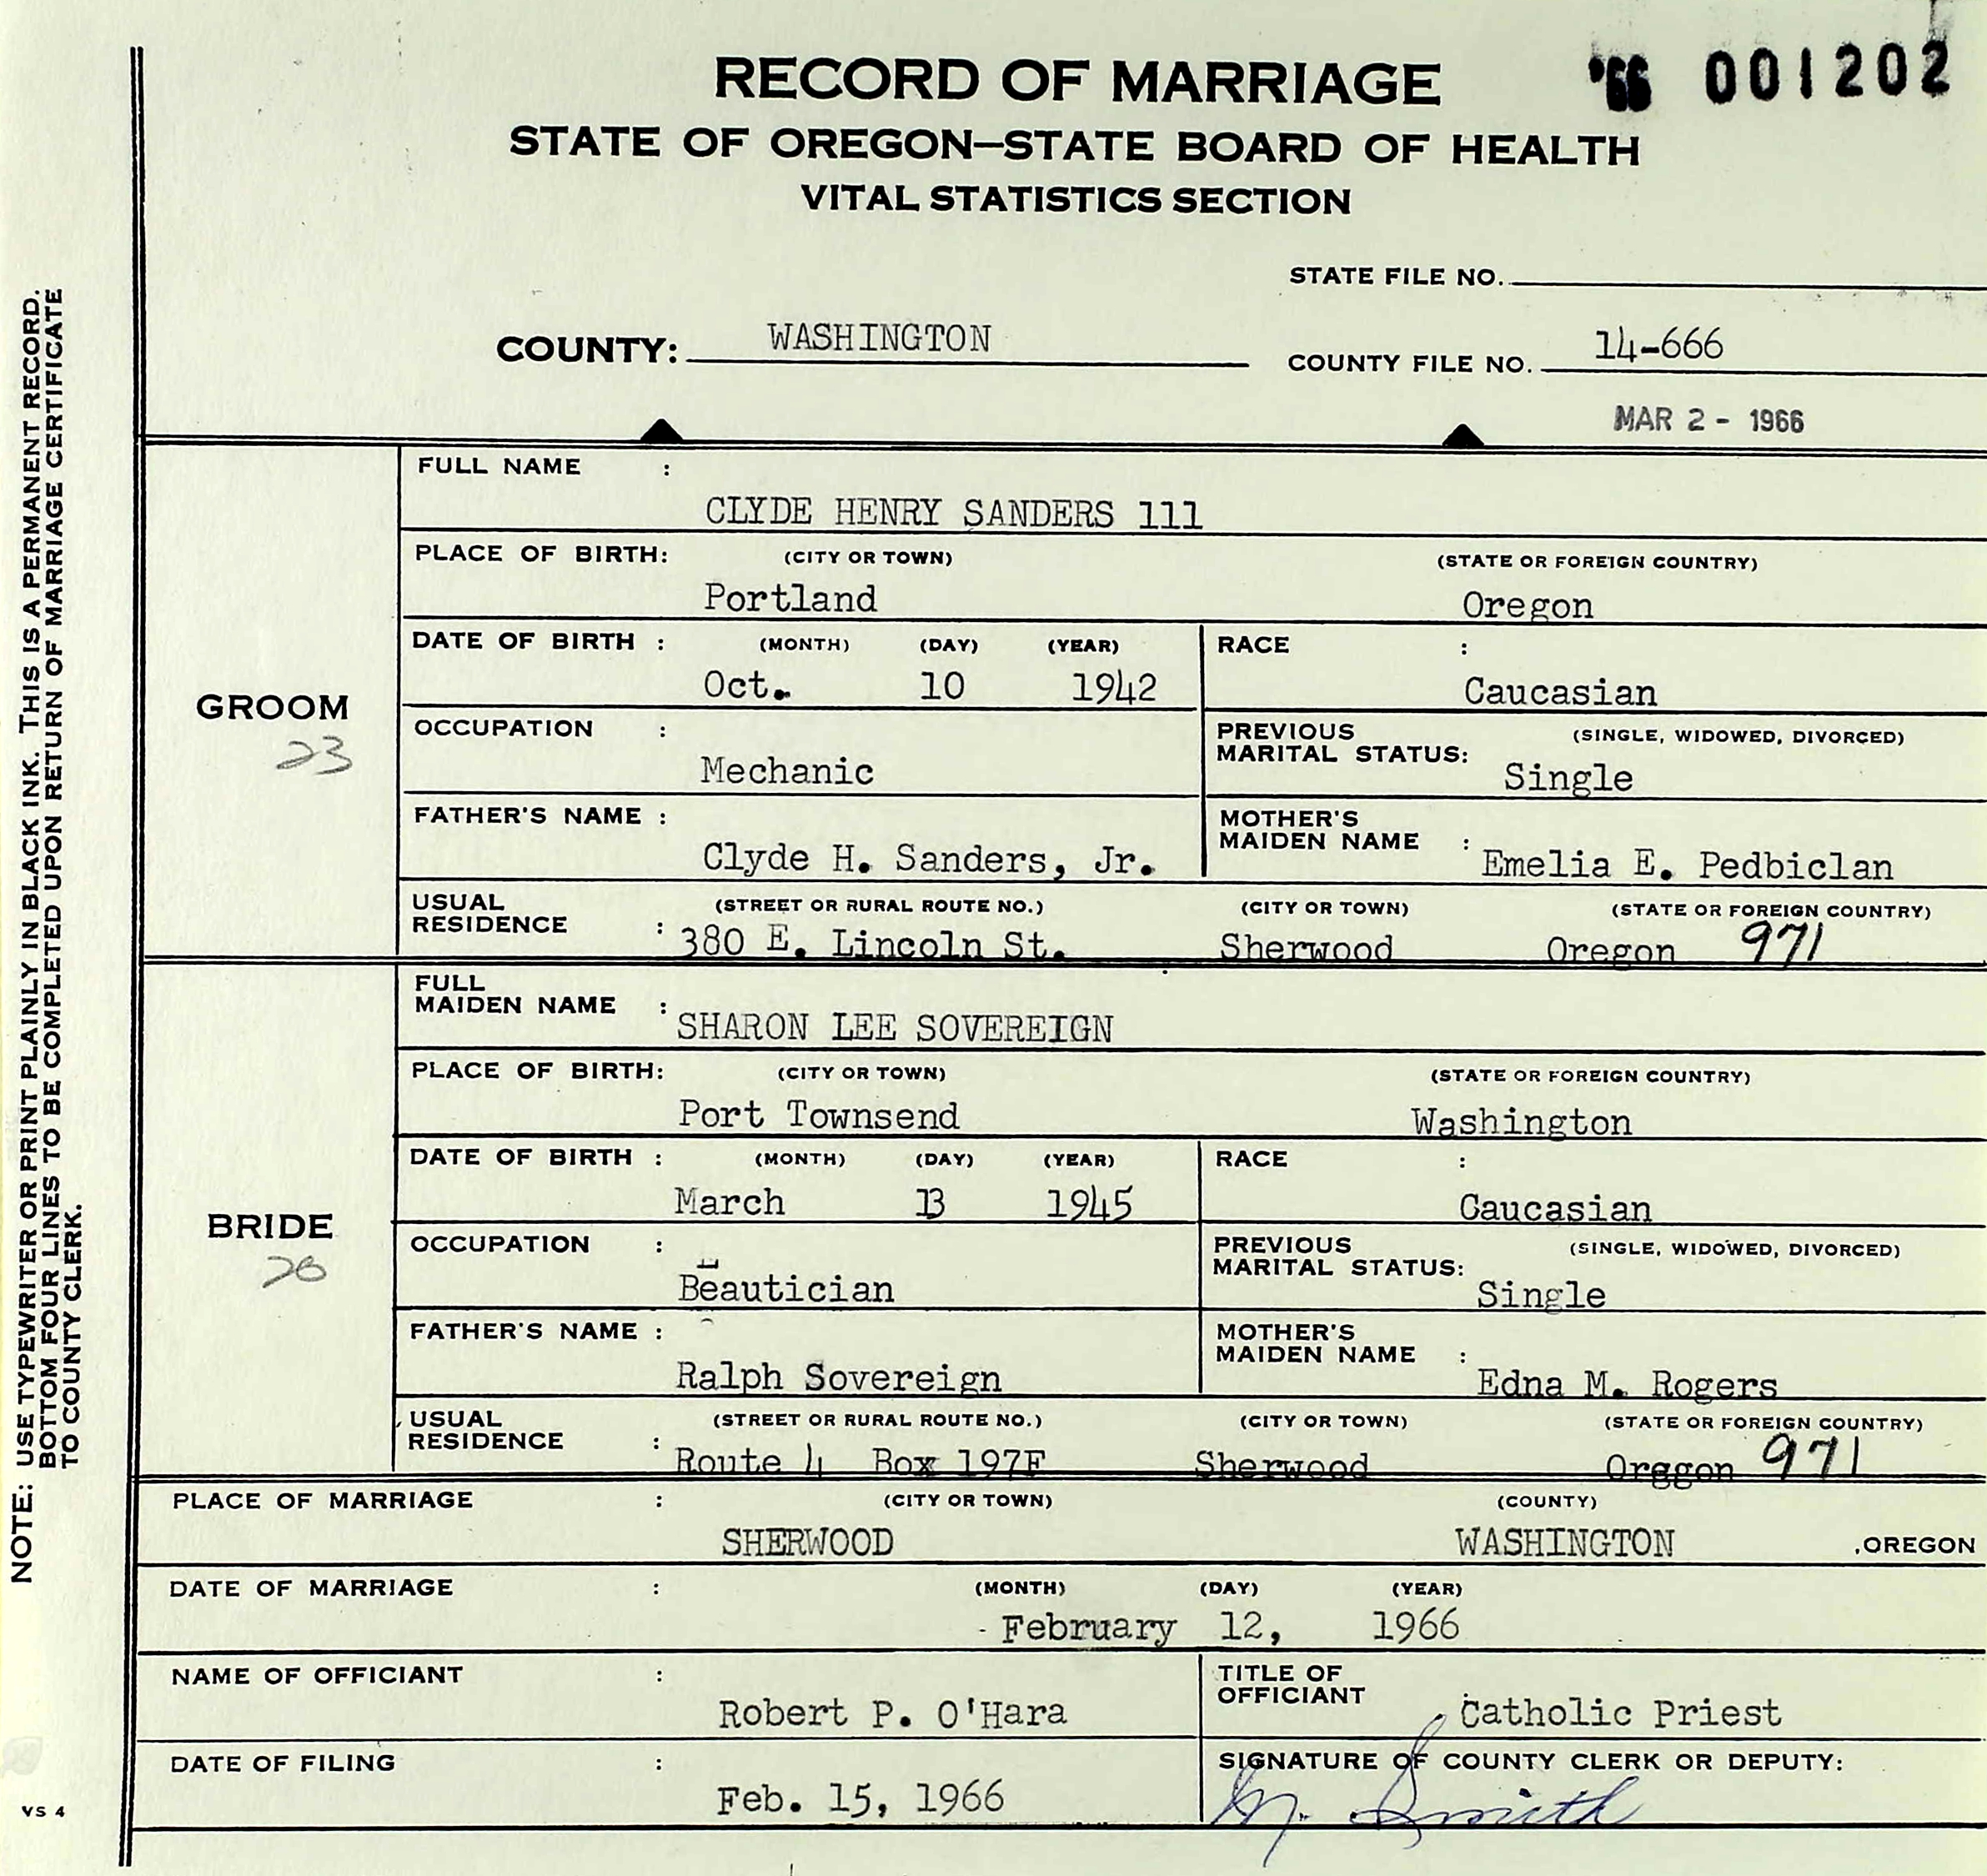 RECORD OF MARRIAGE '66 001202
STATE OF OREGON—STATE BOARD OF HEALTH
VITAL STATISTICS SECTION
STATE FILE NO.
COUNTY: WASHINGTON COUNTY FILE NO. 14-666
MAR 2 - 1966
NOTE: USE TYPEWRITER OR PRINT PLAINLY IN BLACK INK. THIS IS A PERMANENT RECORD.
BOTTOM FOUR LINES TO BE COMPLETED UPON RETURN OF MARRIAGE CERTIFICATE
TO COUNTY CLERK.
GROOM
23
FULL NAME :
CLYDE HENRY SANDERS 111
PLACE OF BIRTH: (CITY OR TOWN) (STATE OR FOREIGN COUNTRY)
Portland Oregon
DATE OF BIRTH : (MONTH) (DAY) (YEAR) RACE :
Oct. 10 1942 Caucasian
OCCUPATION : PREVIOUS (SINGLE, WIDOWED, DIVORCED)
MARITAL STATUS:
Mechanic Single
FATHER'S NAME : MOTHER'S
MAIDEN NAME :
Clyde H. Sanders, Jr. Emelia E. Pedbiclan
USUAL (STREET OR RURAL ROUTE NO.) (CITY OR TOWN) (STATE OR FOREIGN COUNTRY)
RESIDENCE : 380 E. Lincoln St. Sherwood Oregon 971
BRIDE
20
FULL
MAIDEN NAME : SHARON LEE SOVEREIGN
PLACE OF BIRTH: (CITY OR TOWN) (STATE OR FOREIGN COUNTRY)
Port Townsend Washington
DATE OF BIRTH : (MONTH) (DAY) (YEAR) RACE :
March 13 1945 Caucasian
OCCUPATION : PREVIOUS (SINGLE, WIDOWED, DIVORCED)
MARITAL STATUS:
Beautician Single
FATHER'S NAME : MOTHER'S
MAIDEN NAME :
Ralph Sovereign Edna M. Rogers
USUAL (STREET OR RURAL ROUTE NO.) (CITY OR TOWN) (STATE OR FOREIGN COUNTRY)
RESIDENCE : Route 4 Box 197F Sherwood Oreggon 971
PLACE OF MARRIAGE : (CITY OR TOWN) (COUNTY)
SHERWOOD WASHINGTON ,OREGON
DATE OF MARRIAGE : (MONTH) (DAY) (YEAR)
February 12, 1966
NAME OF OFFICIANT : TITLE OF
OFFICIANT :
Robert P. O'Hara Catholic Priest
DATE OF FILING : SIGNATURE OF COUNTY CLERK OR DEPUTY:
Feb. 15, 1966 M. Smith
VS 4